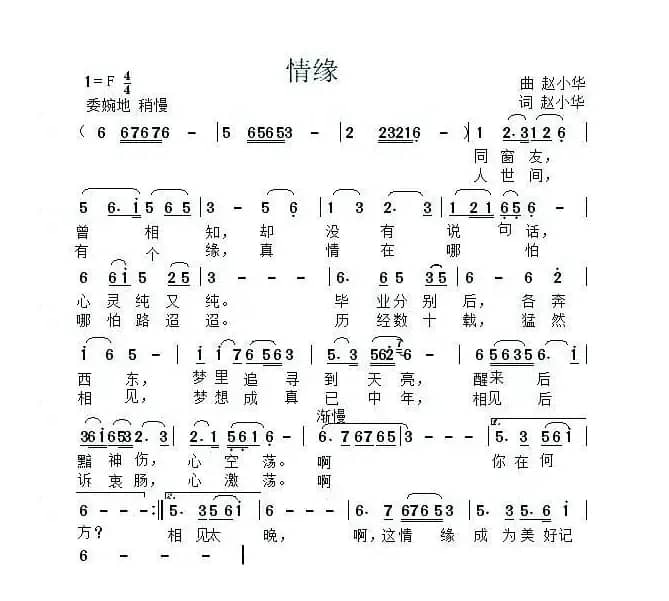 情缘
1=F 4/4
曲 赵小华
委婉地 稍慢
词 赵小华
( 6 67676 - | 5 65653 - | 2 23216 - ) | 1 2.3126 |
同窗友,
人世间,
5 6.1565 | 3 - 5 6 | 1 3 2. 3 | 1 21656 - |
曾 相 知, 却 没 有 说 句 话,
有 个 缘, 真 情 在 哪 怕
6 61525 | 3 - - - | 6. 65 35 | 6 - 6 2 |
心灵纯又纯。 毕业分别后, 各奔
哪怕路迢迢。 历经数十载, 猛然
1 6 5 - | 1 176563 | 5. 35626 - | 656356. 1 |
西东, 梦里追寻到天亮, 醒来后
相见, 梦想成真已中年, 相见后
渐慢
3616532. 3 | 2. 1561 - | 6. 767653 - - - | 5. 3561 |
黯神伤, 心空荡。 啊 你在何
诉衷肠, 心激荡。 啊
6 - - - :| 5. 3561 | 6 - - - | 6. 767653 | 5. 35. 61 |
方? 相见太 晚, 啊,这情缘成为美好记
6 - - |